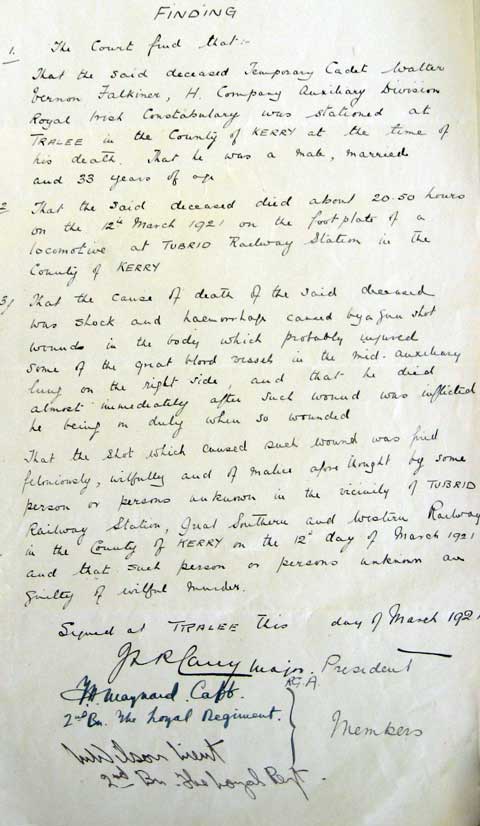 FINDING
1. The Court find that:-
That the said deceased Temporary Cadet Walter
Vernon Falkiner, H. Company Auxiliary Division
Royal Irish Constabulary was stationed at
TRALEE in the County of KERRY at the time of
his death. That he was a male, married
and 33 years of age
2 That the said deceased died about 20.50 hours
on the 12th March 1921 on the footplate of a
locomotive at TUBRID Railway Station in the
County of KERRY
3/ That the cause of death of the said deceased
was shock and haemorrhage caused by a gun shot
wounds in the body which probably injured
some of the great blood vessels in the mid-auxiliary
lung on the right side, and that he died
almost immediately after such wound was inflicted
he being on duty when so wounded
That the shot which caused such wound was fired
feloniously, wilfully and of malice afore thought by some
person or persons unknown in the vicinity of TUBRID
Railway Station, Great Southern and Western Railway
in the County of KERRY on the 12th day of March 1921
and that such person or persons unknown are
guilty of wilful murder.
Signed at TRALEE this day of March 1921
Major. President
R.G.A.
Maynard. Capt.
2nd Bn. The Loyal Regiment.
Members
Wilson Lieut
2nd Bn. The Loyal Regt.